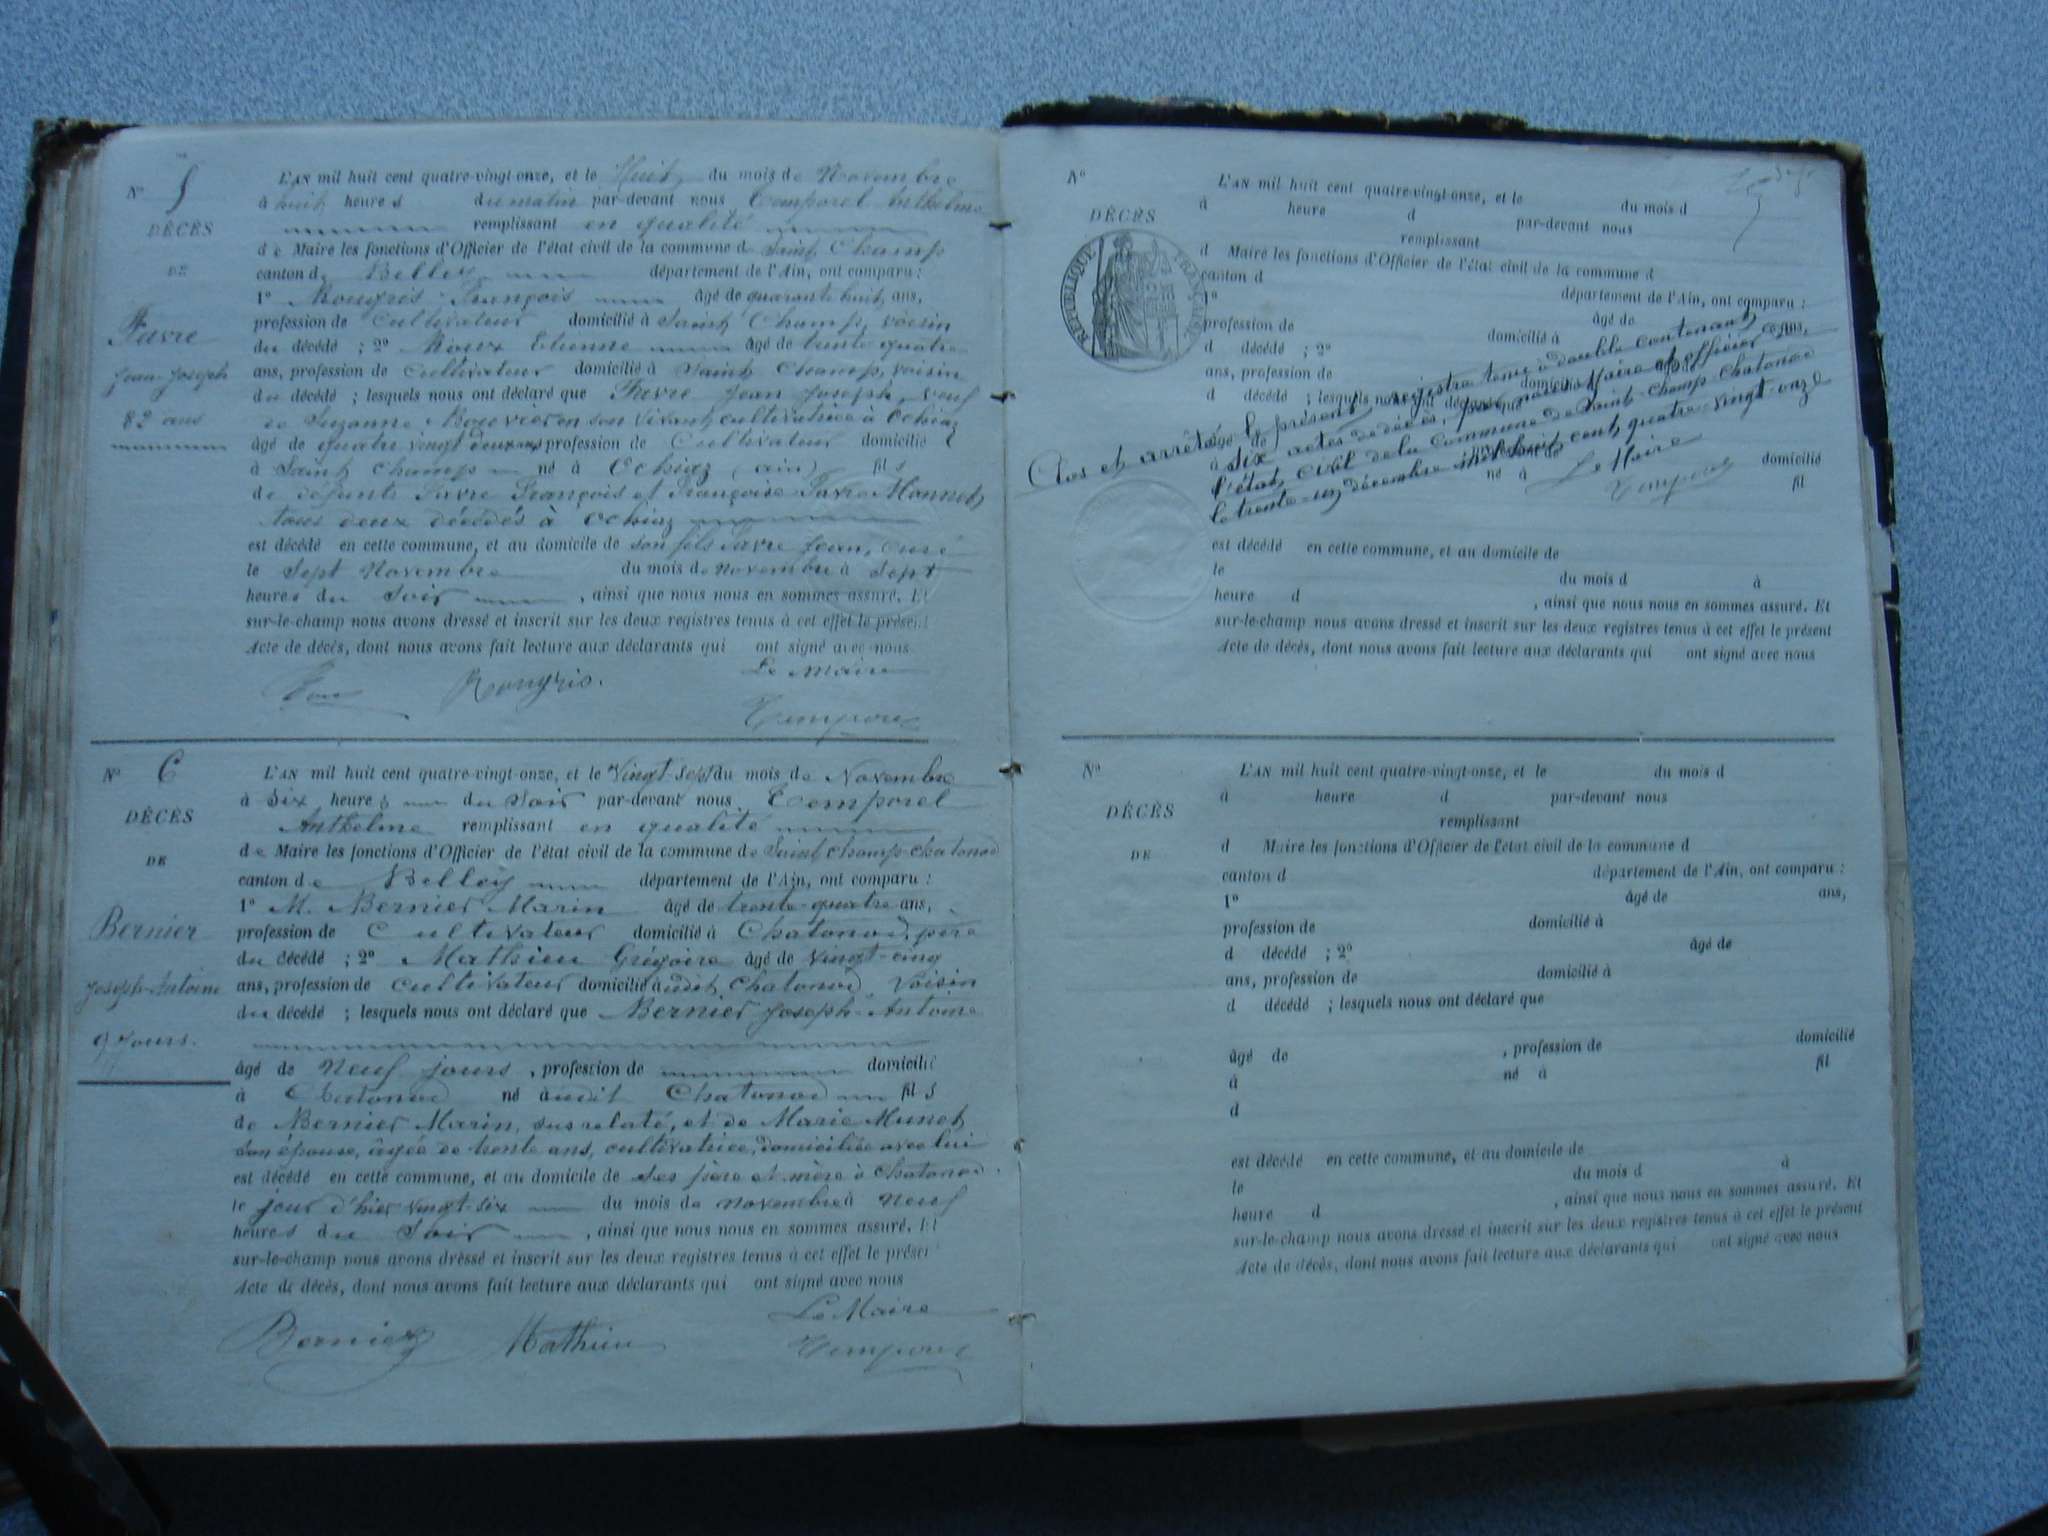 N° 5
DÉCÈS
DE
Favre
Jean-Joseph
82 ans
L'AN mil huit cent quatre-vingt-onze, et le Huit du mois de Novembre
à huit heures du matin par-devant nous Temporel Anthelme
remplissant en qualité
de Maire les fonctions d'Officier de l'état civil de la commune de Saint Champ
canton de Belley département de l'Ain, ont comparu :
1° Rougris François âgé de quarante huit ans,
profession de Cultivateur domicilié à Saint Champ, voisin
du décédé ; 2° Etienne âgé de trente quatre
ans, profession de Cultivateur domicilié à Saint Champ, voisin
du décédé ; lesquels nous ont déclaré que Favre Jean Joseph, veuf
de Suzanne Bouvier en son vivant cultivatrice à Ochiaz
âgé de quatre vingt deux ans profession de Cultivateur domicilié
à Saint Champ né à Ochiaz (ain) fils
de défunts Favre François et Françoise Favre Monnet,
tous deux décédés à Ochiaz
est décédé en cette commune, et au domicile de son fils Favre Jean, curé
le Sept Novembre du mois de Novembre à Sept
heures du Soir, ainsi que nous nous en sommes assuré. Et
sur-le-champ nous avons dressé et inscrit sur les deux registres tenus à cet effet le présent
Acte de décès, dont nous avons fait lecture aux déclarants qui ont signé avec nous
Le Maire
Rougris.
Temporel
N° 6
DÉCÈS
DE
Bernier
Joseph-Antoine
9 Jours.
L'AN mil huit cent quatre-vingt-onze, et le Vingt-Sept du mois de Novembre
à Six heures du Soir par-devant nous Temporel
Anthelme remplissant en qualité
de Maire les fonctions d'Officier de l'état civil de la commune de Saint Champ-Chatonod
canton de Belley département de l'Ain, ont comparu :
1° M. Bernier Marin âgé de trente-quatre ans,
profession de Cultivateur domicilié à Chatonod, père
du décédé ; 2° Mathieu Grégoire âgé de Vingt-cinq
ans, profession de Cultivateur domicilié audit Chatonod, Voisin
du décédé ; lesquels nous ont déclaré que Bernier Joseph-Antoine
âgé de Neuf jours, profession de domicilié
à Chatonod né audit Chatonod fils
de Bernier Marin, susrelaté, et de Marie Munet,
son épouse, âgée de trente ans, cultivatrice, domiciliée avec lui
est décédé en cette commune, et au domicile de Ses père et mère à Chatonod.
le jour d'hier vingt-six du mois de Novembre à Neuf
heures du Soir, ainsi que nous nous en sommes assuré. Et
sur-le-champ nous avons dressé et inscrit sur les deux registres tenus à cet effet le présent
Acte de décès, dont nous avons fait lecture aux déclarants qui ont signé avec nous
Le Maire
Bernier Mathieu Temporel
N°
DÉCÈS
RÉPUBLIQUE FRANÇAISE
L'AN mil huit cent quatre-vingt-onze, et le du mois d
à heure d par-devant nous
remplissant
d Maire les fonctions d'Officier de l'état civil de la commune d
canton d département de l'Ain, ont comparu :
1° âgé de ans,
profession de domicilié à
d décédé ; 2°
ans, profession de domicilié
d décédé ; lesquels nous ont déclaré que
âgé de
domicilié
à né à fil
Clos et arrêté le présent registre tenu à double contenant
six actes de décès, par nous Maire et officier de
l'état civil de la commune de Saint-Champ-Chatonod
le trente-un décembre mil huit cent quatre-vingt-onze
Le Maire
Temporel
est décédé en cette commune, et au domicile de
le du mois d à
heure d , ainsi que nous nous en sommes assuré. Et
sur-le-champ nous avons dressé et inscrit sur les deux registres tenus à cet effet le présent
Acte de décès, dont nous avons fait lecture aux déclarants qui ont signé avec nous
N°
DÉCÈS
DE
L'AN mil huit cent quatre-vingt-onze, et le du mois d
à heure d par-devant nous
remplissant
d Maire les fonctions d'Officier de l'état civil de la commune d
canton d département de l'Ain, ont comparu :
1° âgé de ans,
profession de domicilié à
d décédé ; 2° âgé de
ans, profession de domicilié à
d décédé ; lesquels nous ont déclaré que
âgé de , profession de domicilié
à né à fil
d
est décédé en cette commune, et au domicile de
le du mois d à
heure d , ainsi que nous nous en sommes assuré. Et
sur-le-champ nous avons dressé et inscrit sur les deux registres tenus à cet effet le présent
Acte de décès, dont nous avons fait lecture aux déclarants qui ont signé avec nous